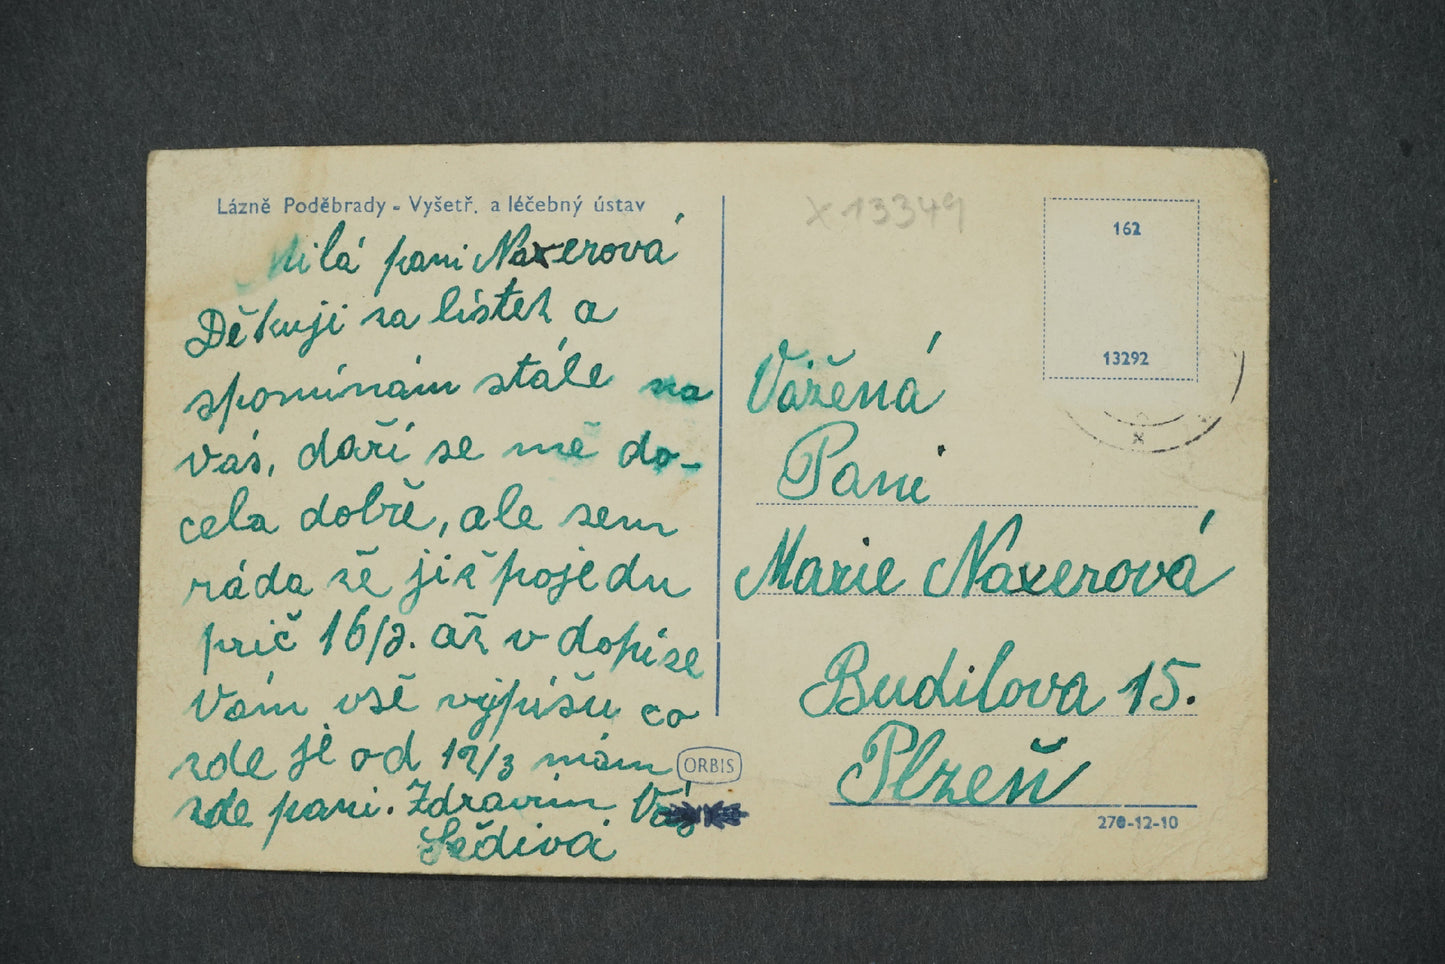 Lázně Poděbrady - Vyšetř. a léčebný ústav
Milá pani Naxerová
Děkuji za lístek a
spomínám stále na
vás, daří se mě do-
cela dobře, ale sem
ráda že již pojedu
prič 16/3. až v dopise
Vám vše vypíšu co
zde je od 12/3 mám
zde pani. Zdravím Vás
Šedivá
ORBIS
X 13349
162
13292
Vážená
Pani
Marie Naxerová
Budilova 15.
Plzeň
278-12-10